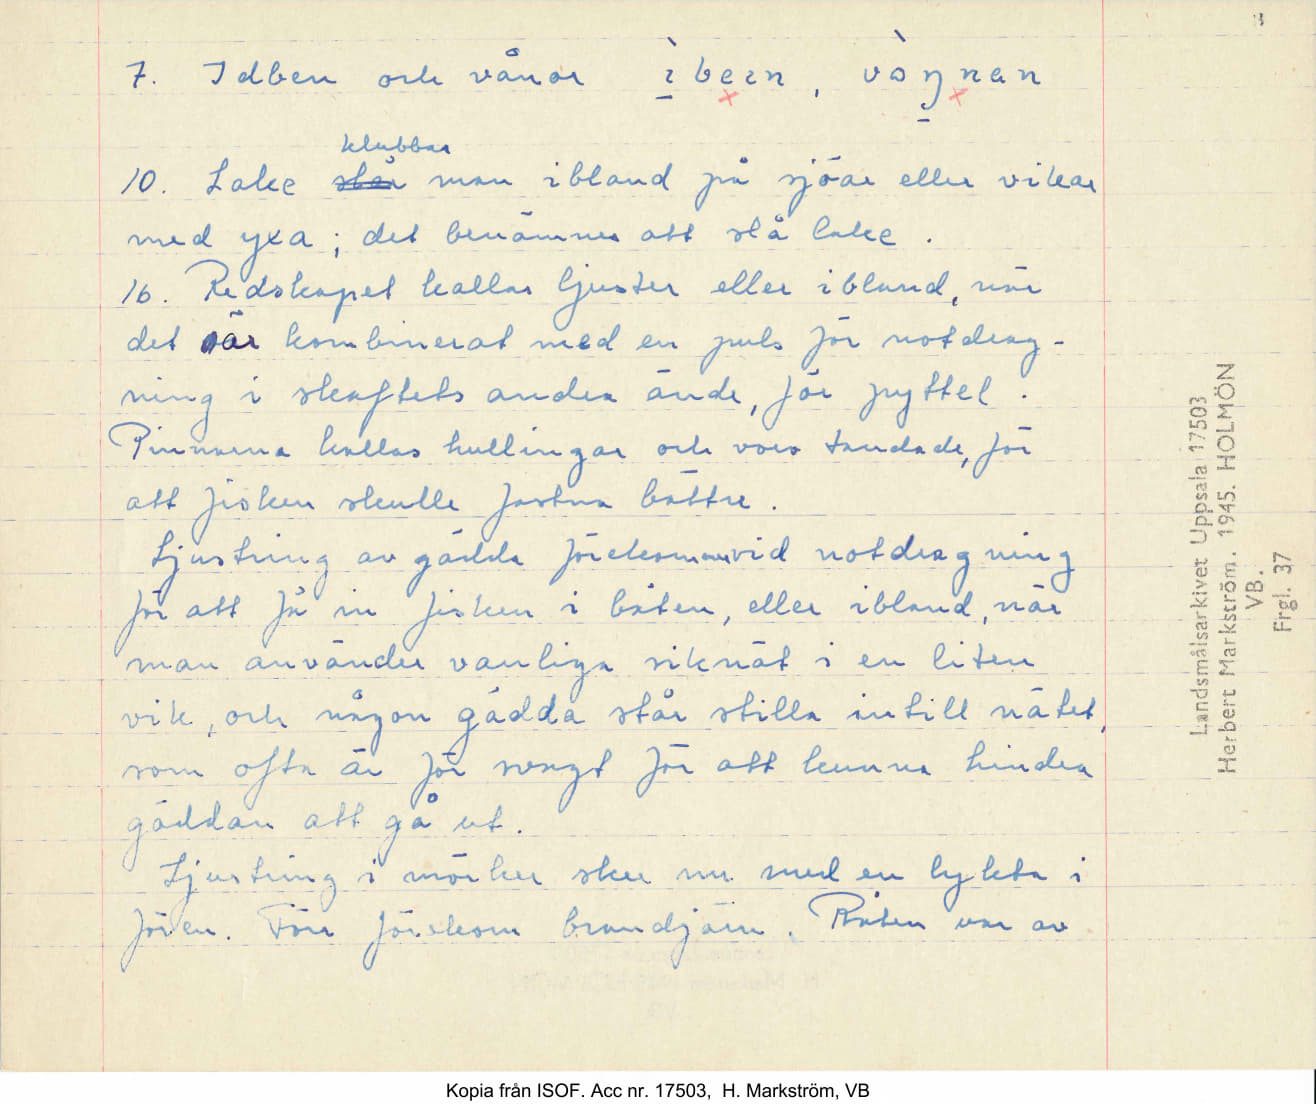 7. Idben och vånar ìbein, vòŋnan
klubbar
10. Lake slår man ibland på sjöar eller vikar
med yxa; det benämnes att slå lake.
16. Redskapet kallas ljuster eller ibland, när
det är kombinerat med en puls för notdrag-
ning i skaftets andra ände, för pyttel.
Pinnarna kallas hullingar och voro tandade, för
att fisken skulle fastna bättre.
Ljustring av gädda förekommer vid notdragning
för att få in fisken i båten, eller ibland, när
man använder vanliga siknät i en liten
vik, och någon gädda står stilla intill nätet,
som ofta är för svagt för att kunna hindra
gäddan att gå ut.
Ljustring i mörker sker nu med en lykta i
fören. Förr förekom brandjärn. Båten var av
Landsmålsarkivet Uppsala 17503
Herbert Markström. 1945. HOLMÖN
VB.
Frgl. 37
Kopia från ISOF. Acc nr. 17503, H. Markström, VB